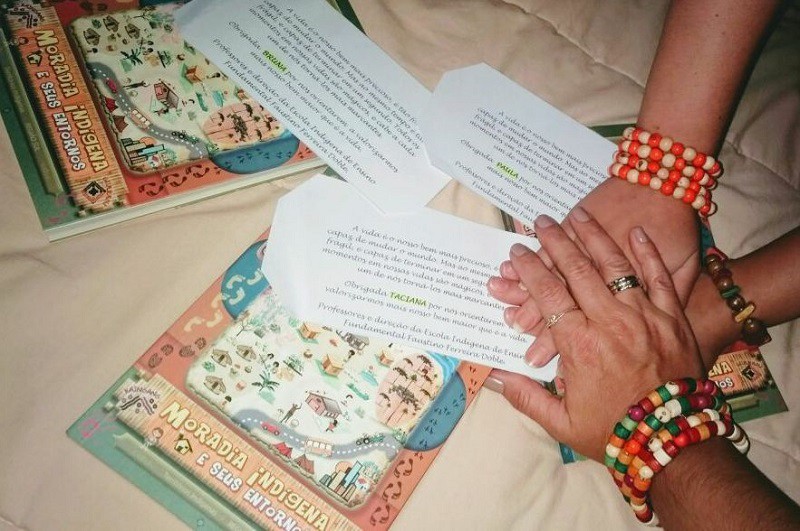 MORADIA INDÍGENA
E SEUS ENTORNOS
A vida é o nosso bem mais precioso, e tão
capaz de mudar o mundo. Mas ao mesmo tempo
frágil, e capaz de terminar em um segundo. Todos os
momentos em nossas vidas são mágicos, e cabe a cada
um de nós torna-los mais marcantes.
Obrigada BRUNA por nos orientarem, a valorizarmos
mais nosso bem maior que é a vida.
Professores e direção da Escola Indígena de Ensino
Fundamental Faustino Ferreira Doble.
A vida é o nosso bem mais precioso
capaz de mudar o mundo. Mas ao mesmo
frágil, e capaz de terminar em um segundo
momentos em nossas vidas são mágicos
um de nós torna-los mais
Obrigada PAULA por nos
mais nosso bem
Professores e direção da
Fundamental
A vida é o nosso bem mais precioso,
capaz de mudar o mundo. Mas ao mesmo
frágil, e capaz de terminar em um
momentos em nossas vidas são mágicos,
um de nós torna-los mais marcantes
Obrigada TACIANA por nos orientarem
valorizarmos mais nosso bem maior que é a vida.
Professores e direção da Escola Indígena de Ensino
Fundamental Faustino Ferreira Doble.
KAINGANG
MORADIA INDÍGENA
E SEUS ENTORNOS